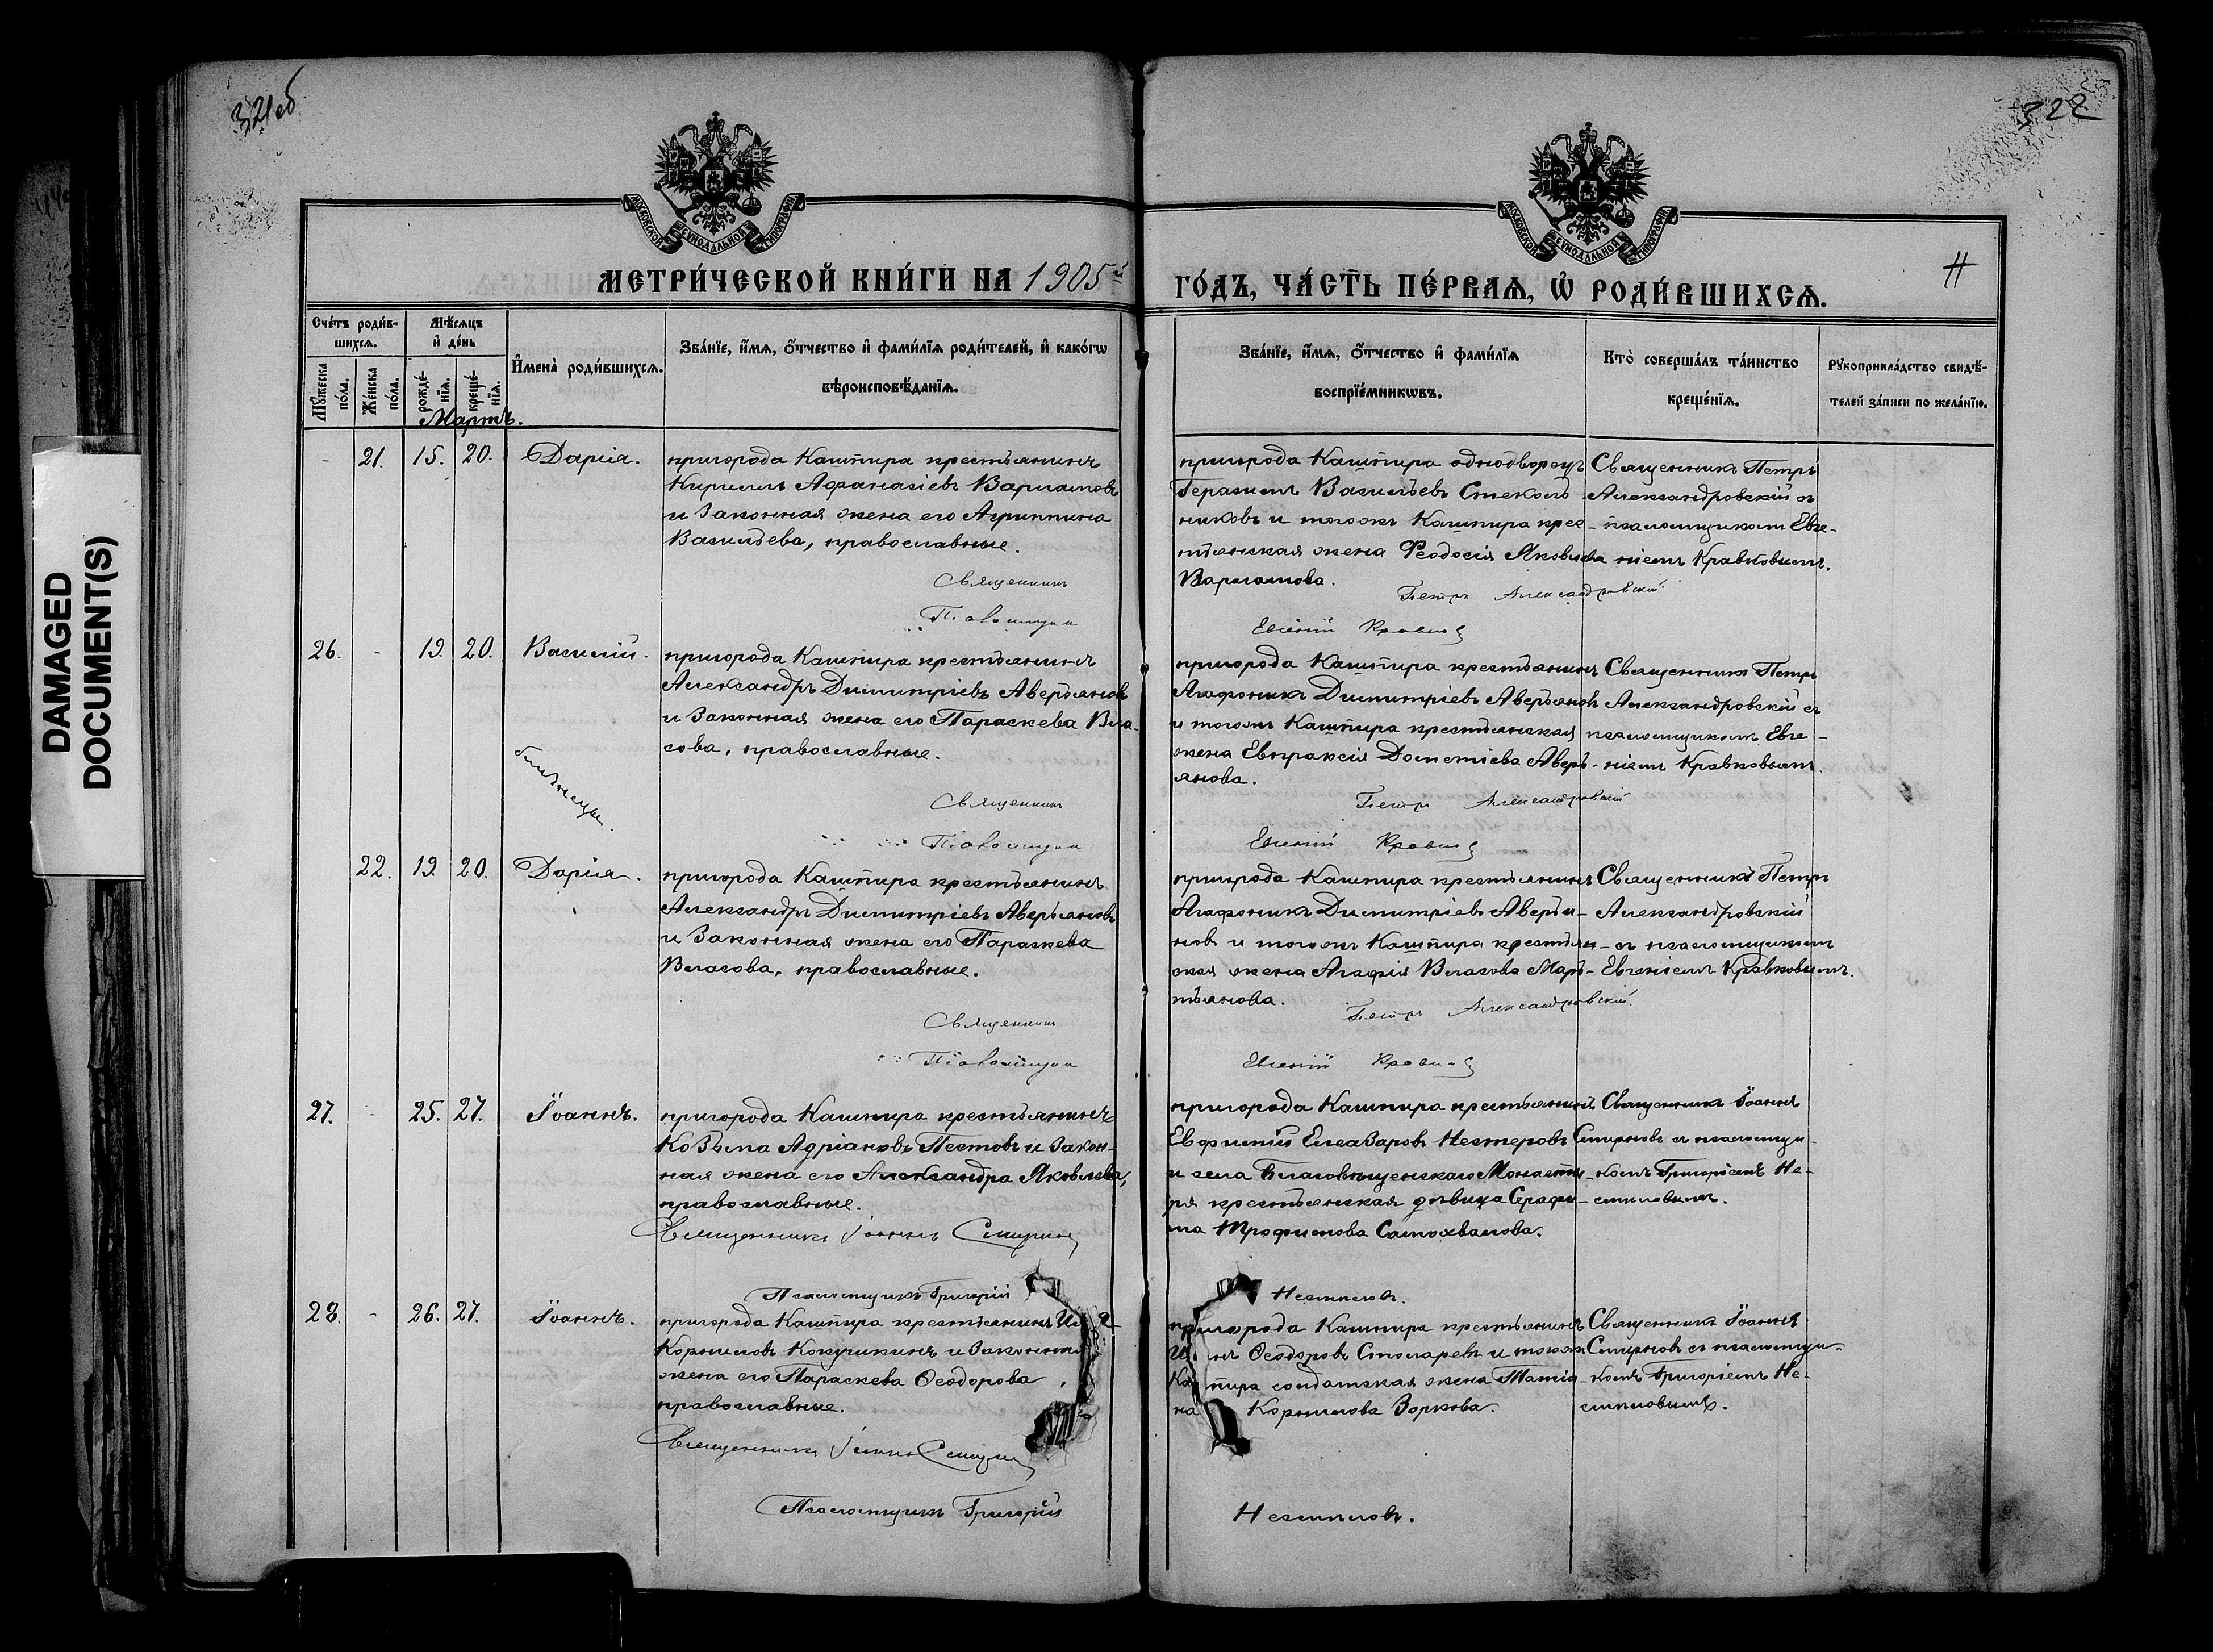 321об
322
МОСКОВСКОЙ СУНОДАЛЬНОЙ ТИПОГРАФІИ
МОСКОВСКОЙ СУНОДАЛЬНОЙ ТИПОГРАФІИ
МЕТРИ́ЧЕСКОЙ КНИ́ГИ НА 1905й
ГО́ДЪ, ЧА́СТЬ ПЕ́РВАѦ, Ѡ҆ РОДИ́ВШИХСѦ.
11
Сче́тъ роди́в-
шихсѧ.
Мꙋ́жеска
по́ла.
Же́нска
по́ла.
Мѣ́сѧцъ
и҆ де́нь
рожде́-
нїѧ.
креще́-
нїѧ.
И҆мена̀ роди́вшихсѧ.
Зва́нїе, и҆́мѧ, ѻ҆́тчество и҆ фами́лїѧ роди́телей, и҆ како́гѡ
вѣроисповѣ́данїѧ.
Зва́нїе, и҆́мѧ, ѻ҆́тчество и҆ фами́лїѧ
воспрїе́мникѡвъ.
Кто̀ соверша́лъ та́инство
креще́нїѧ.
Рꙋкоприкла́дство свидѣ́-
телей за́писи по жела́нїю.
Мартъ.
- 21. 15. 20. Дарія.
пригорода Кашпира крестьянинъ
Кириллъ Афанасіевъ Варламовъ
и законная жена его Агриппина
Васильева, православные.
Священникъ
Псаломщикъ
пригорода Кашпира однодворецъ
Герасимъ Васильевъ Стеколь-
никовъ и тогожъ Кашпира крес-
тьянская жена Феодосія Яковлева
Варламова.
Петръ Александровскій.
Евгеній Кравковъ
Священникъ Петръ
Александровскій съ
псаломщикомъ Евге-
ніемъ Кравковымъ.
26. - 19. 20. Василій.
близнецы.
пригорода Кашпира крестьянинъ
Александръ Димитріевъ Аверьяновъ
и законная жена его Параскева Вла-
сова, православные.
Священникъ
Псаломщикъ
пригорода Кашпира крестьянинъ
Агафоникъ Димитріевъ Аверьяновъ
и тогожъ Кашпира крестьянская
жена Евпраксія Доспетіева Аверь-
янова.
Петръ Александровскій
Евгеній Кравковъ
Священникъ Петръ
Александровскій съ
псаломщикомъ Евге-
ніемъ Кравковымъ.
22. 19. 20. Дарія.
пригорода Кашпира крестьянинъ
Александръ Димитріевъ Аверьяновъ
и законная жена его Параскева
Власова, православные.
Священникъ
Псаломщикъ
пригорода Кашпира крестьянинъ
Агафоникъ Димитріевъ Аверья-
новъ и тогожъ Кашпира крестьян-
ская жена Агафія Власова Марь-
тьянова.
Петръ Александровскій.
Евгеній Кравковъ
Священникъ Петръ
Александровскій
съ псаломщикомъ
Евгеніемъ Кравковымъ.
27. - 25. 27. Іоаннъ.
пригорода Кашпира крестьянинъ
Козьма Адріановъ Пестовъ и закон-
ная жена его Александра Яковлева,
православные.
Священникъ Іоаннъ Смирновъ
Псаломщикъ Григорій
пригорода Кашпира крестьянинъ
Евфимій Елеазаровъ Нестеровъ
и села Благовѣщенскаго Монасты-
ря крестьянская дѣвица Серафи-
ма Трофимова Самохвалова.
Несмѣловъ.
Священникъ Іоаннъ
Смирновъ съ псаломщи-
комъ Григоріемъ Не-
смѣловымъ.
28. - 26. 27. Іоаннъ.
пригорода Кашпира крестьянинъ
Корниловъ Кокушкинъ и законная
жена его Параскева Ѳеодорова,
православные.
Священникъ Іоаннъ Смирновъ
Псаломщикъ Григорій
пригорода Кашпира крестьянинъ
Ѳеодоровъ Столяревъ и тогожъ
Кашпира солдатская жена Татія-
на Корнилова Зоркова.
Несмѣловъ.
Священникъ Іоаннъ
Смирновъ съ псаломщи-
комъ Григоріемъ Не-
смѣловымъ.
DAMAGED
DOCUMENT(S)